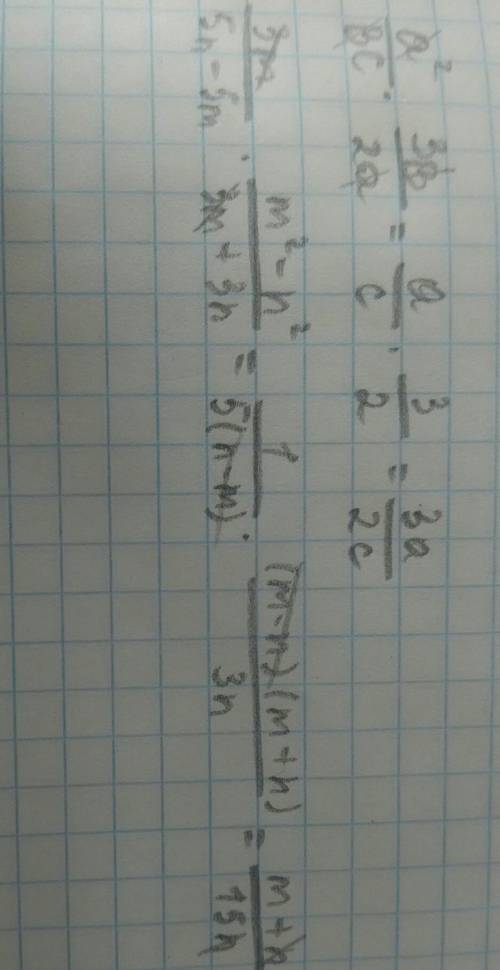 a²/bc · 3b/2a = a/c · 3/2 = 3a/2c
3m/(5n - 5m) · (m² - n²)/(3m + 3n) = 1/(5(n-m)) · (m-n)(m+n)/3n = (m+n)/15n